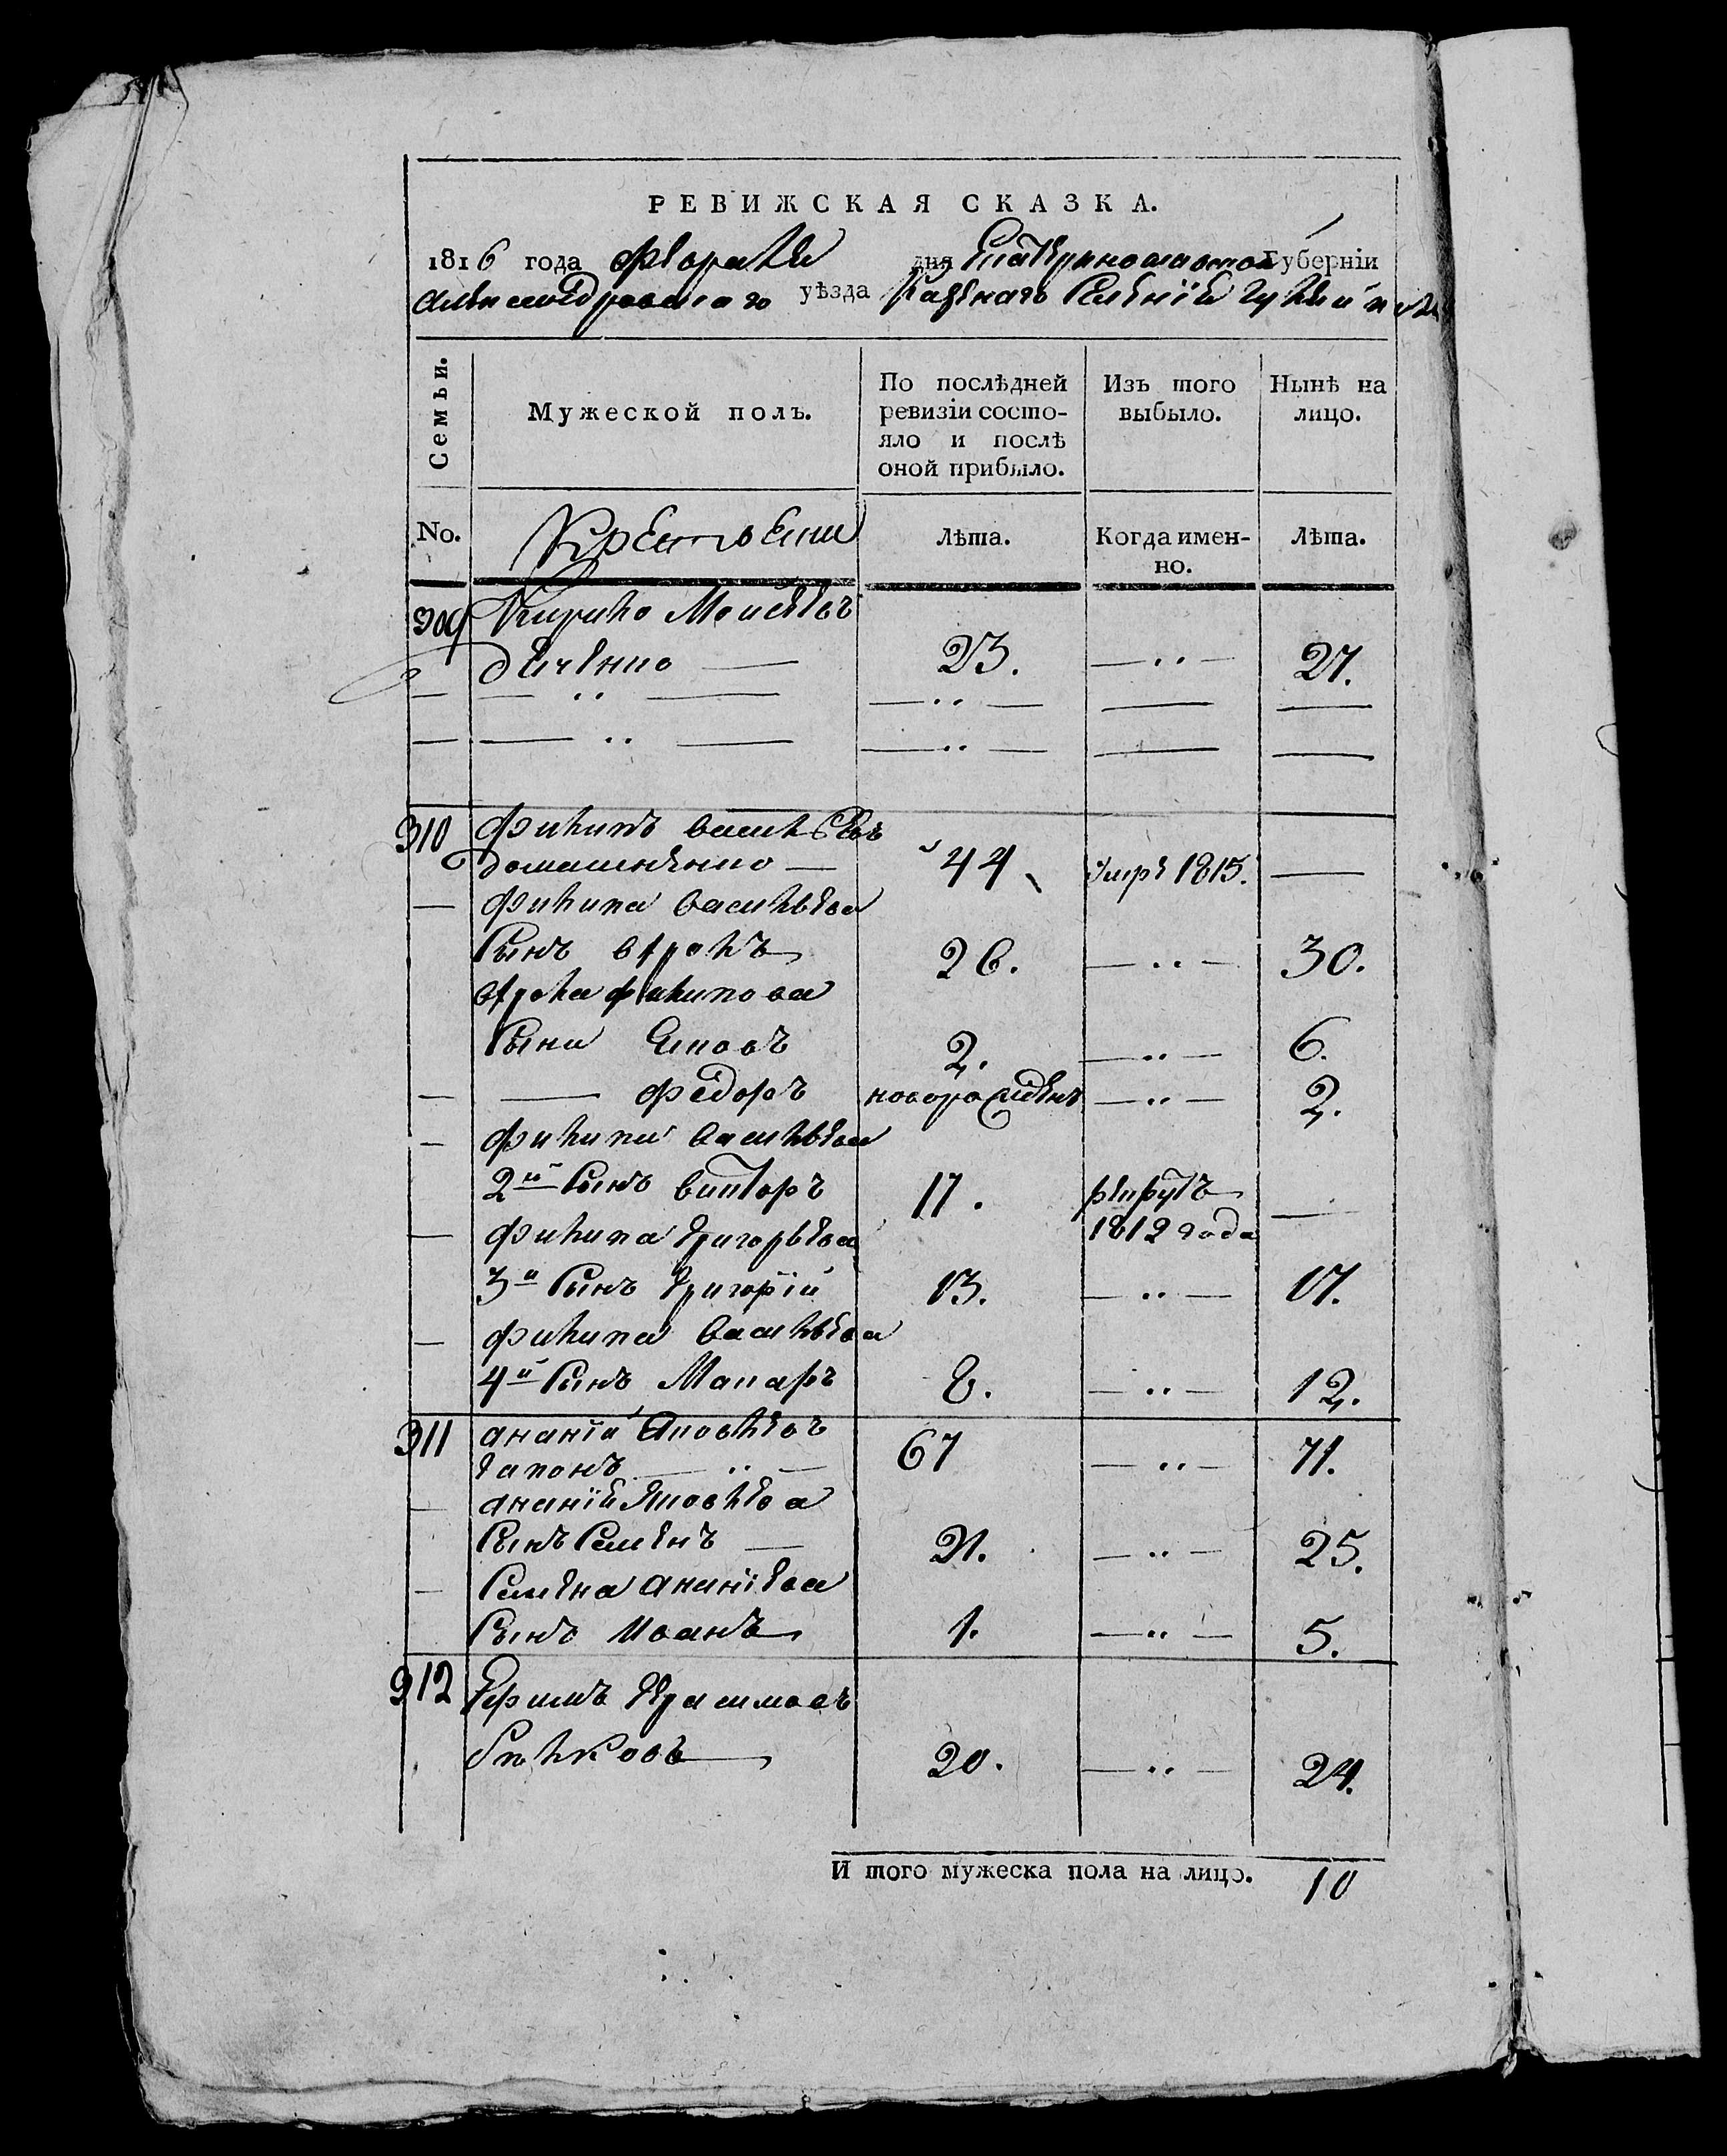 РЕВИЖСКАЯ СКАЗКА.
1816 года февраля дня Екатеринославской Губерніи
Александровскаго уѣзда Казенаго Селенія
Семьи.
Мужеской полъ.
По послѣдней ревизіи состо-
яло и послѣ
оной прибыло.
Изъ того
выбыло.
Нынѣ на
лицо.
No.
лѣта.
Когда имен-
но.
лѣта.
309 Кирило Моисеевъ
23. — ·· — 27.
310 Филипъ Василіевъ
Домашненко — 44 умре 1815. —
Филипа Василиева
Сынъ Фролъ 26. — ·· — 30.
Фрола Филипова
Сыни Яковъ 2. — ·· — 6.
— Федоръ новорожденъ — ·· — 2.
Филипа Василиева
2й Сынъ Викторъ 17. рекрутъ —
1812 года
Филипа Григорьева
3й Сынъ Григорій 13. — ·· — 17.
Филипа Василиева
4й Сынъ Макаръ 8. — ·· — 12.
311 Ананій Яковлевъ
Гапонъ — ·· — 67 — ·· — 71.
Ананія Яковлева
Сынъ Семенъ — 21. — ·· — 25.
Семена Ананіева
Сынъ Иванъ 1. — ·· — 5.
312 Ефимъ Герасимовъ
20. — ·· — 24.
И того мужеска пола на лицо. 10